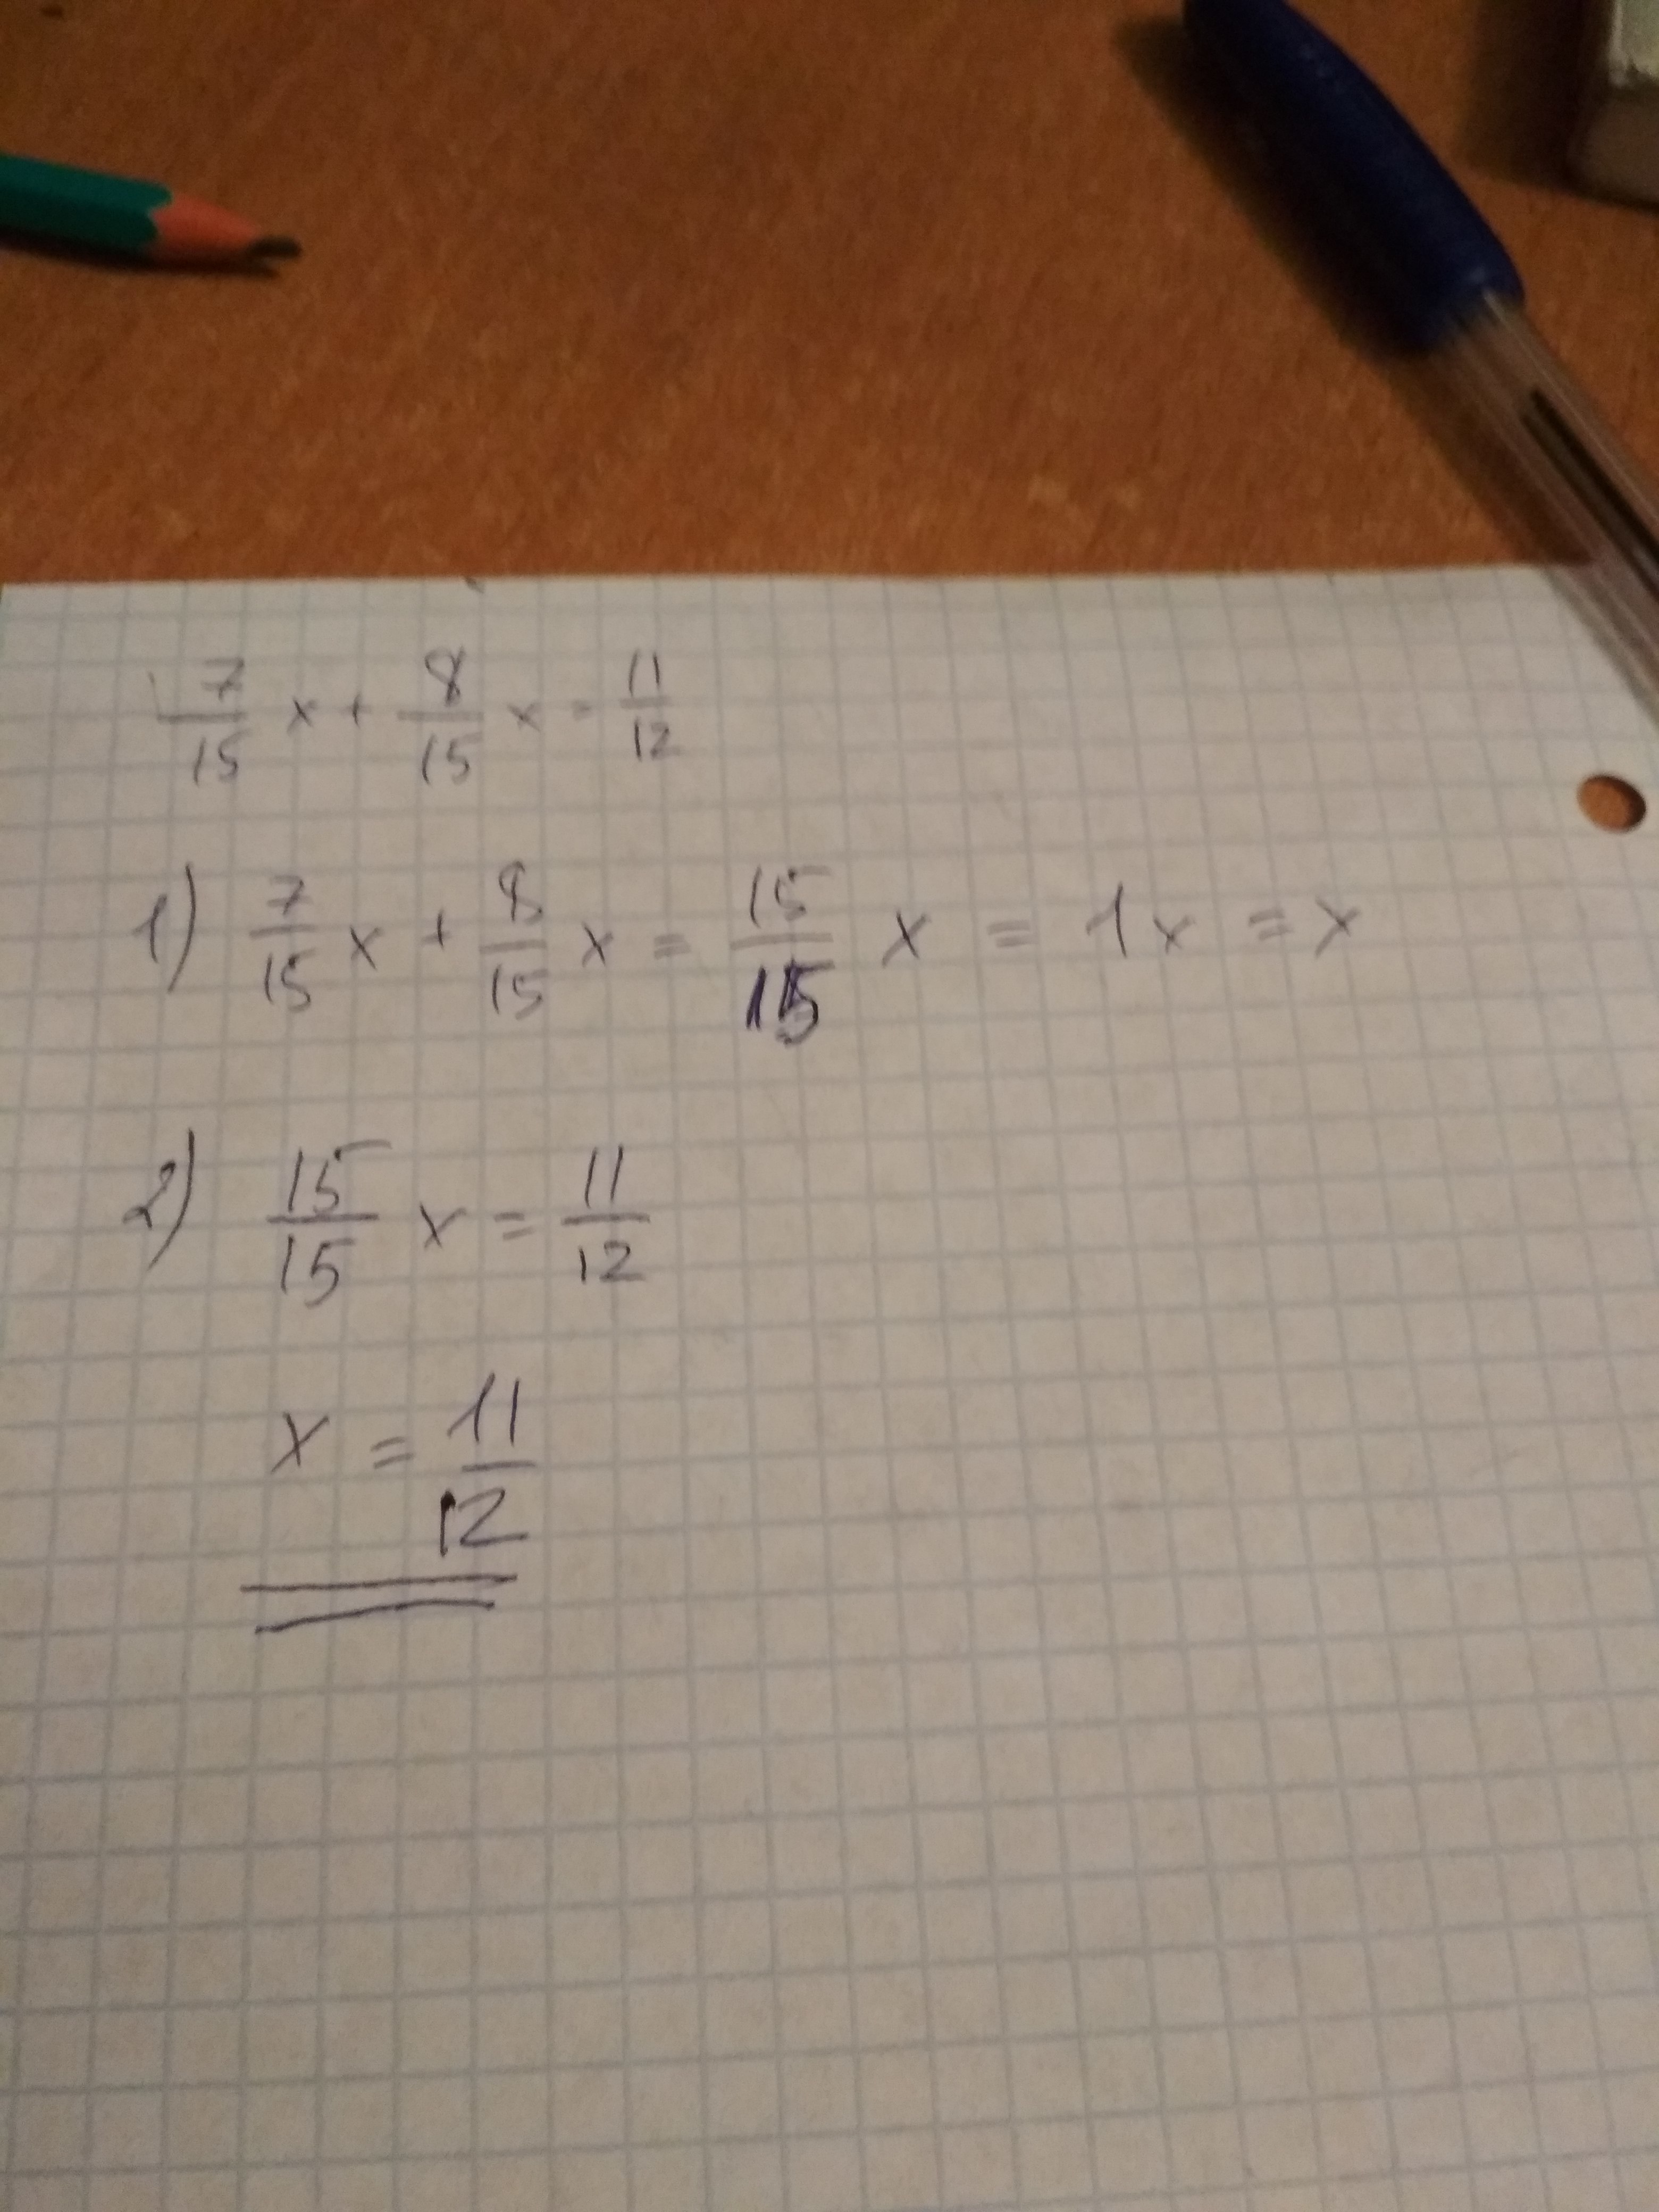 7/15 x + 8/15 x = 11/12
1) 7/15 x + 8/15 x = 15/15 x = 1x = x
2) 15/15 x = 11/12
x = 11/12